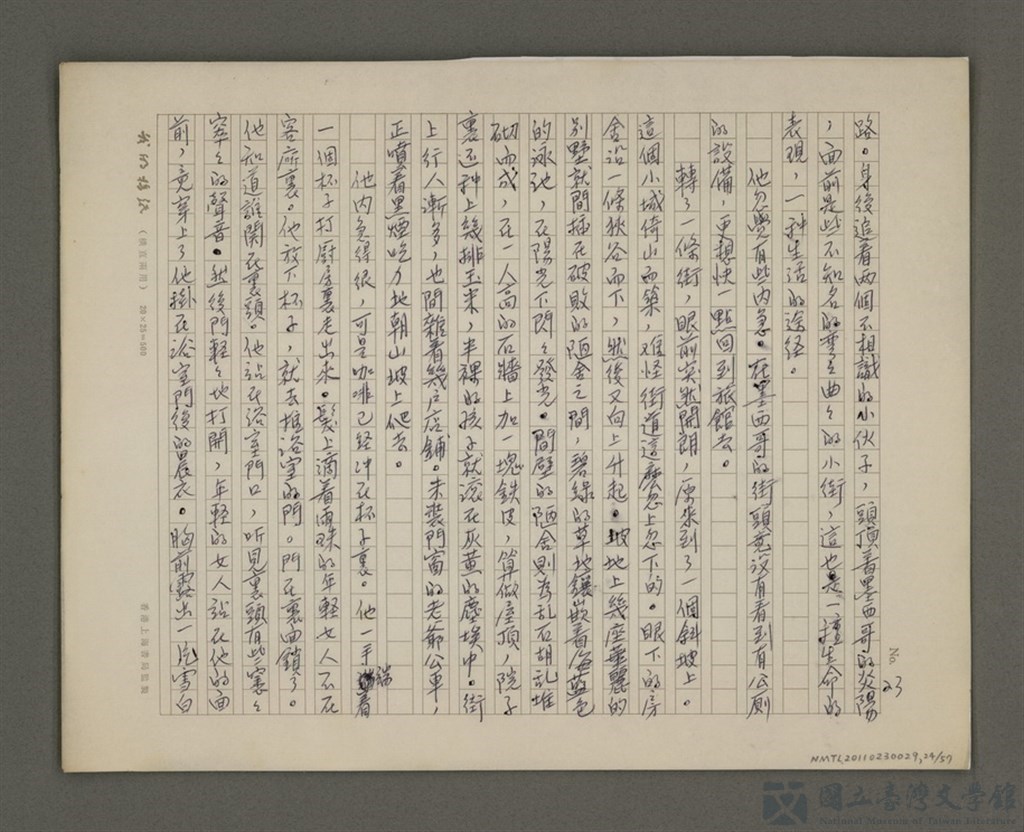 No. 23
路。身後追着兩個不相識的小伙子,頭頂着墨西哥的炎陽
,面前是些不知名的彎彎曲曲的小街,這也是一種生命的
表現,一種生活的途徑。
他忽覺有些内急。在墨西哥的街頭竟沒有看到有公厠
的設備,更想快一點回到旅館去。
轉了一條街,眼前突然開朗,原來到了一個斜坡上。
這個小城倚山而築,难怪街道這麽忽上忽下的。眼下的房
舍沿一條狹谷而下,然後又向上升起。坡地上幾座華麗的
別墅就間揷在破敗的陋舍之間,碧綠的草地鑲嵌着海藍色
的泳池,在陽光下閃々發光。間壁的陋舍則爲乱石胡乱堆
砌而成,在一人高的石牆上加一塊鉄皮,算做屋頂,院子
裏还种上幾排玉米,半裸的孩子就滾在灰黃的塵埃中。街
上行人漸多,也間雜着幾戶店鋪。未裝門窗的老爺公車,
正噴着黑煙吃力地朝山坡上爬去。
他内急得很,可是咖啡已经冲在杯子裏。他一手端着
一個杯子打厨房裏走出來。髮上滴着雨珠的年輕女人不在
客廳裏。他放下杯子,就去推浴室的門。門在裏面鎖了。
他知道誰関在裏頭。他站在浴室門口,听見裏頭有些窸々
窣々的聲音。然後門輕々地打開,年輕的女人站在他的面
前,竟穿上了他掛在浴室門後的晨衣。胸前露出一片雪白
(橫直兩用) 20×25=500
香港上海書局監製
NMTL20110230029,24/57
國立臺灣文學館
National Museum of Taiwan Literature